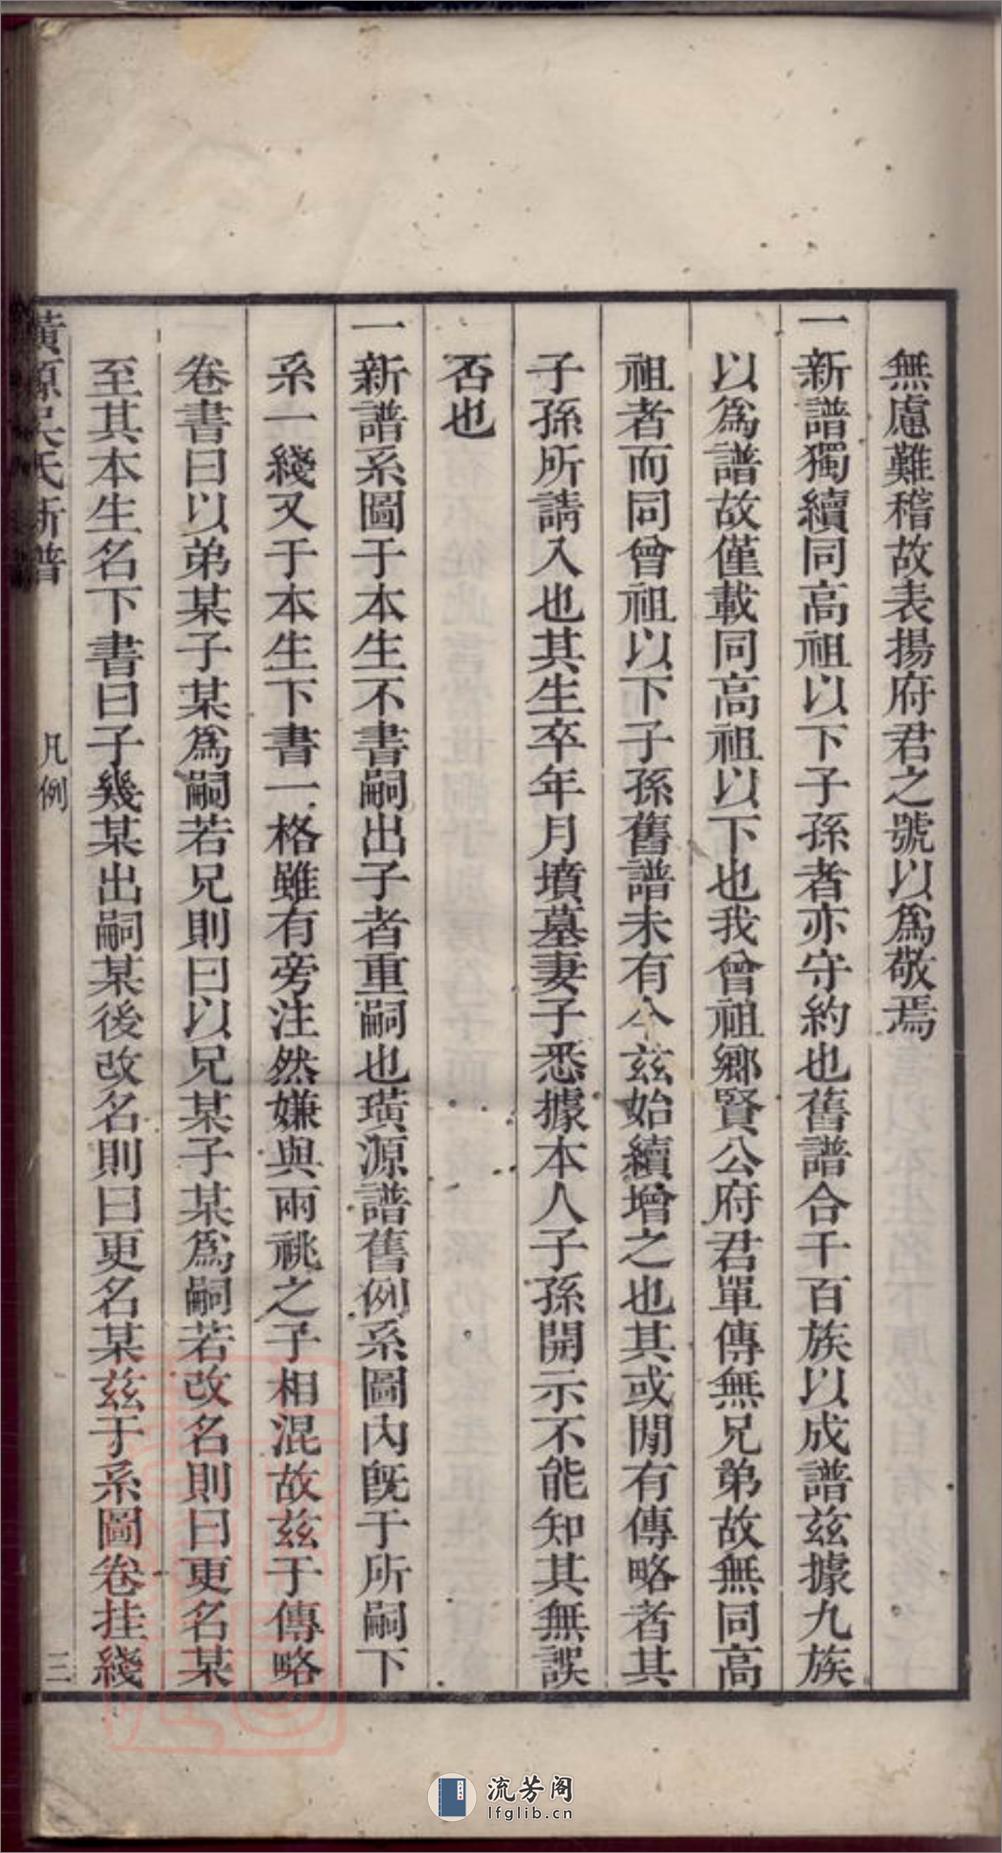 無慮難稽故表揚府君之號以爲敬焉
一新譜獨續同高祖以下子孫者亦守約也舊譜合千百族以成譜兹據九族
以爲譜故僅載同高祖以下也我曾祖鄉賢公府君單傳無兄弟故無同高
祖者而同曾祖以下子孫舊譜未有今兹始續增之也其或閒有傳略者其
子孫所請入也其生卒年月墳墓妻子悉據本人子孫開示不能知其無誤
否也
一新譜系圖于本生不書嗣出子者重嗣也璜源譜舊例系圖內旣于所嗣下
系一綫又于本生下書一格雖有旁注然嫌與兩祧之子相混故兹于傳略
卷書曰以弟某子某爲嗣若兄則曰以兄某子某爲嗣若改名則曰更名某
至其本生名下書曰子幾某出嗣某後改名則曰更名某兹于系圖卷挂綫
璜源吳氏新譜 凡例 三
流芳阁
lfglib.cn